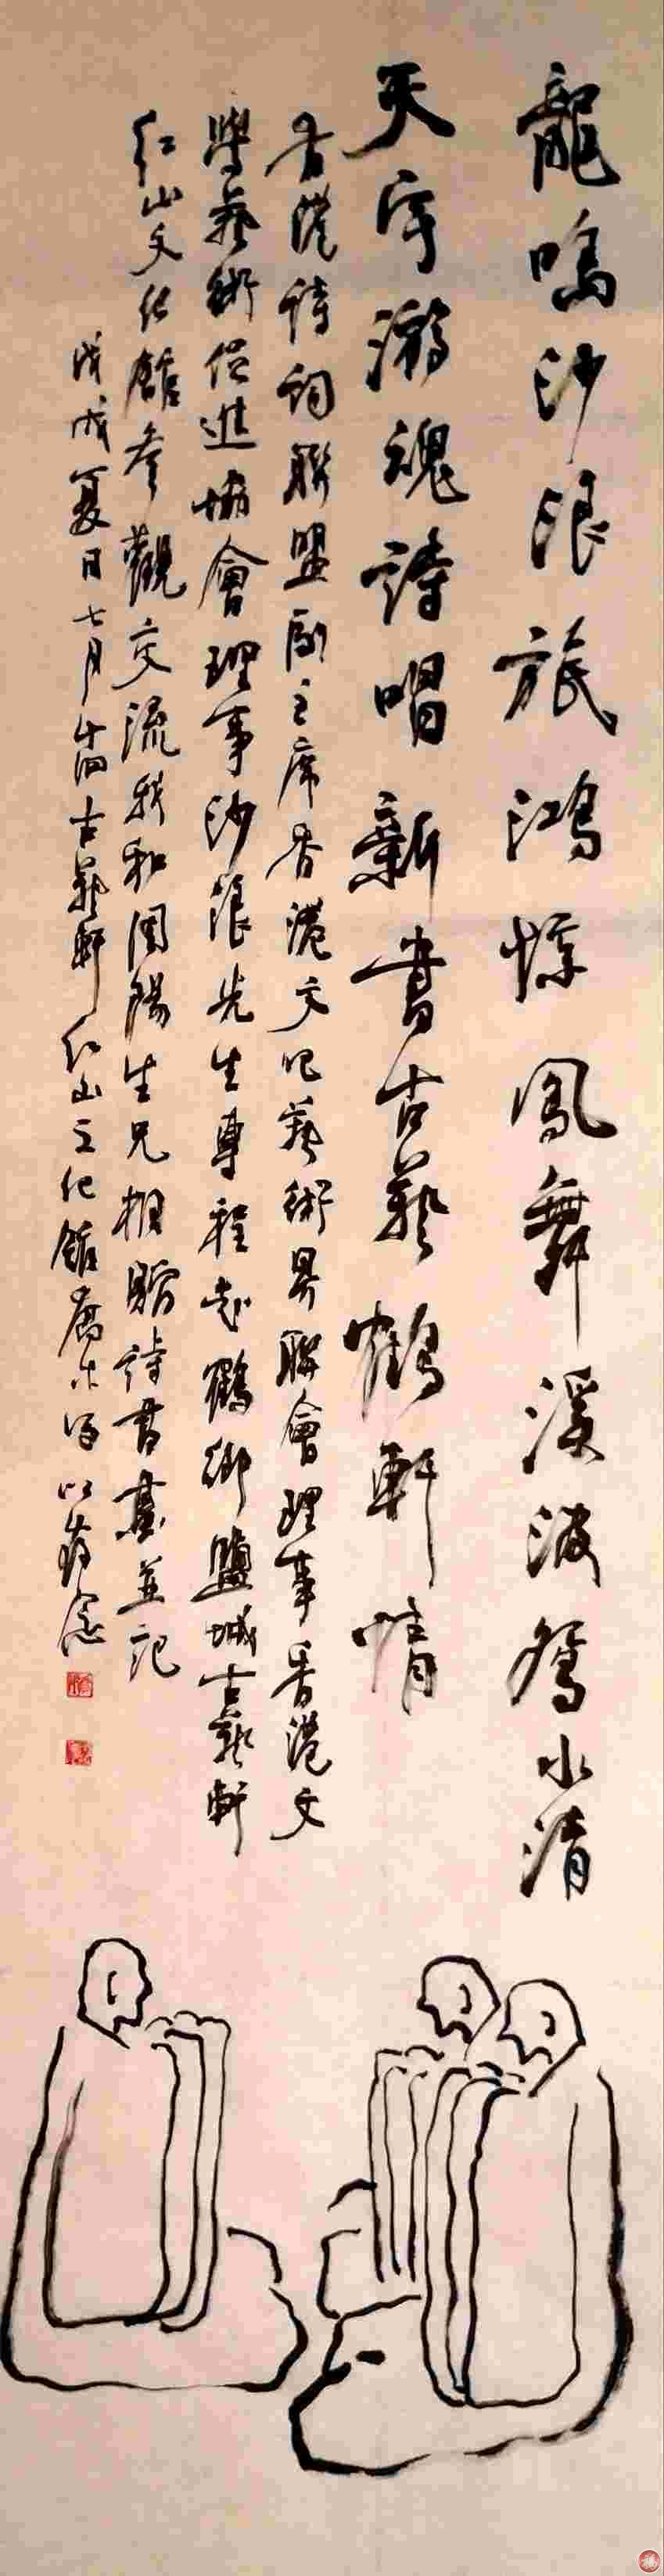 龍鳴沙浪旅鴻惊鳳舞溪波鴛水清
天宇游魂詩唱新書古藝鶴軒情
香港詩詞聯盟副主席香港文化藝術界聯會理事香港文
學藝術促進協會理事沙浪先生專程赴鶴鄉鹽城古藝軒
红山文化館参觀交流我和周陽生兄相贈詩書畫並記
戊戌夏日七月古藝軒红山文化館以存念